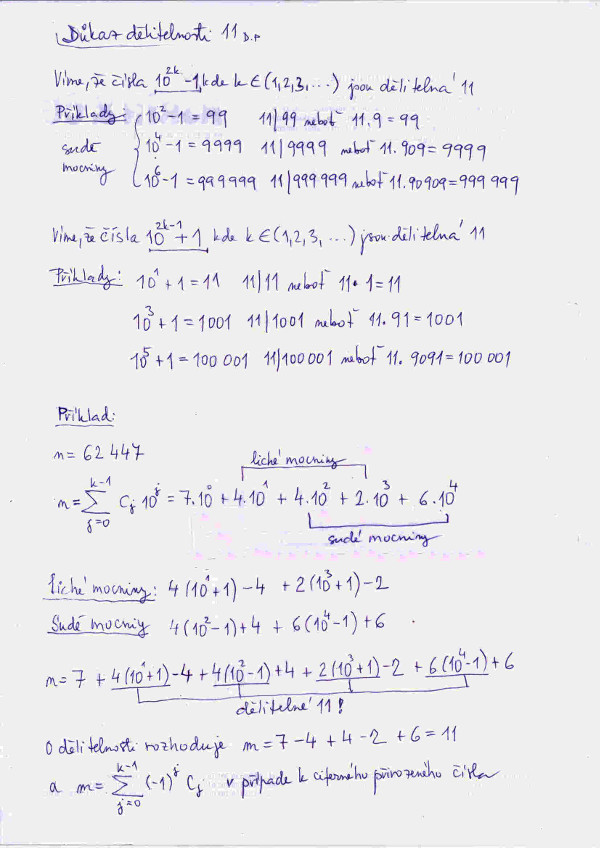 Důkaz dělitelnosti 11 D.P
Víme, že čísla 10^{2k} - 1, kde k ∈ (1,2,3, ...) jsou dělitelná 11
Příklady 10^2 - 1 = 99 11/99 neboť 11.9 = 99
sudé 10^4 - 1 = 9999 11/9999 neboť 11.909 = 9999
mocniny 10^6 - 1 = 999999 11/999999 neboť 11.90909 = 999 999
Víme, že čísla 10^{2k-1} + 1 kde k ∈ (1,2,3, ...) jsou dělitelná 11
Příklady: 10^1 + 1 = 11 11/11 neboť 11 • 1 = 11
10^3 + 1 = 1001 11/1001 neboť 11. 91 = 1001
10^5 + 1 = 100 001 11/100 001 neboť 11. 9091 = 100 001
Příklad:
n = 62 447
liché mocniny
n = \sum_{j=0}^{k-1} C_j 10^j = 7.10^0 + 4.10^1 + 4.10^2 + 2.10^3 + 6.10^4
sudé mocniny
Liché mocniny: 4(10^1+1) - 4 + 2(10^3+1) - 2
Sudé mocniy 4(10^2-1) + 4 + 6(10^4-1) + 6
n = 7 + 4(10^1+1) - 4 + 4(10^2-1) + 4 + 2(10^3+1) - 2 + 6(10^4-1) + 6
dělitelné 11!
O dělitelnosti rozhoduje m = 7 - 4 + 4 - 2 + 6 = 11
a m = \sum_{j=0}^{k-1} (-1)^j C_j v případe k ciferného přirozeného čísla